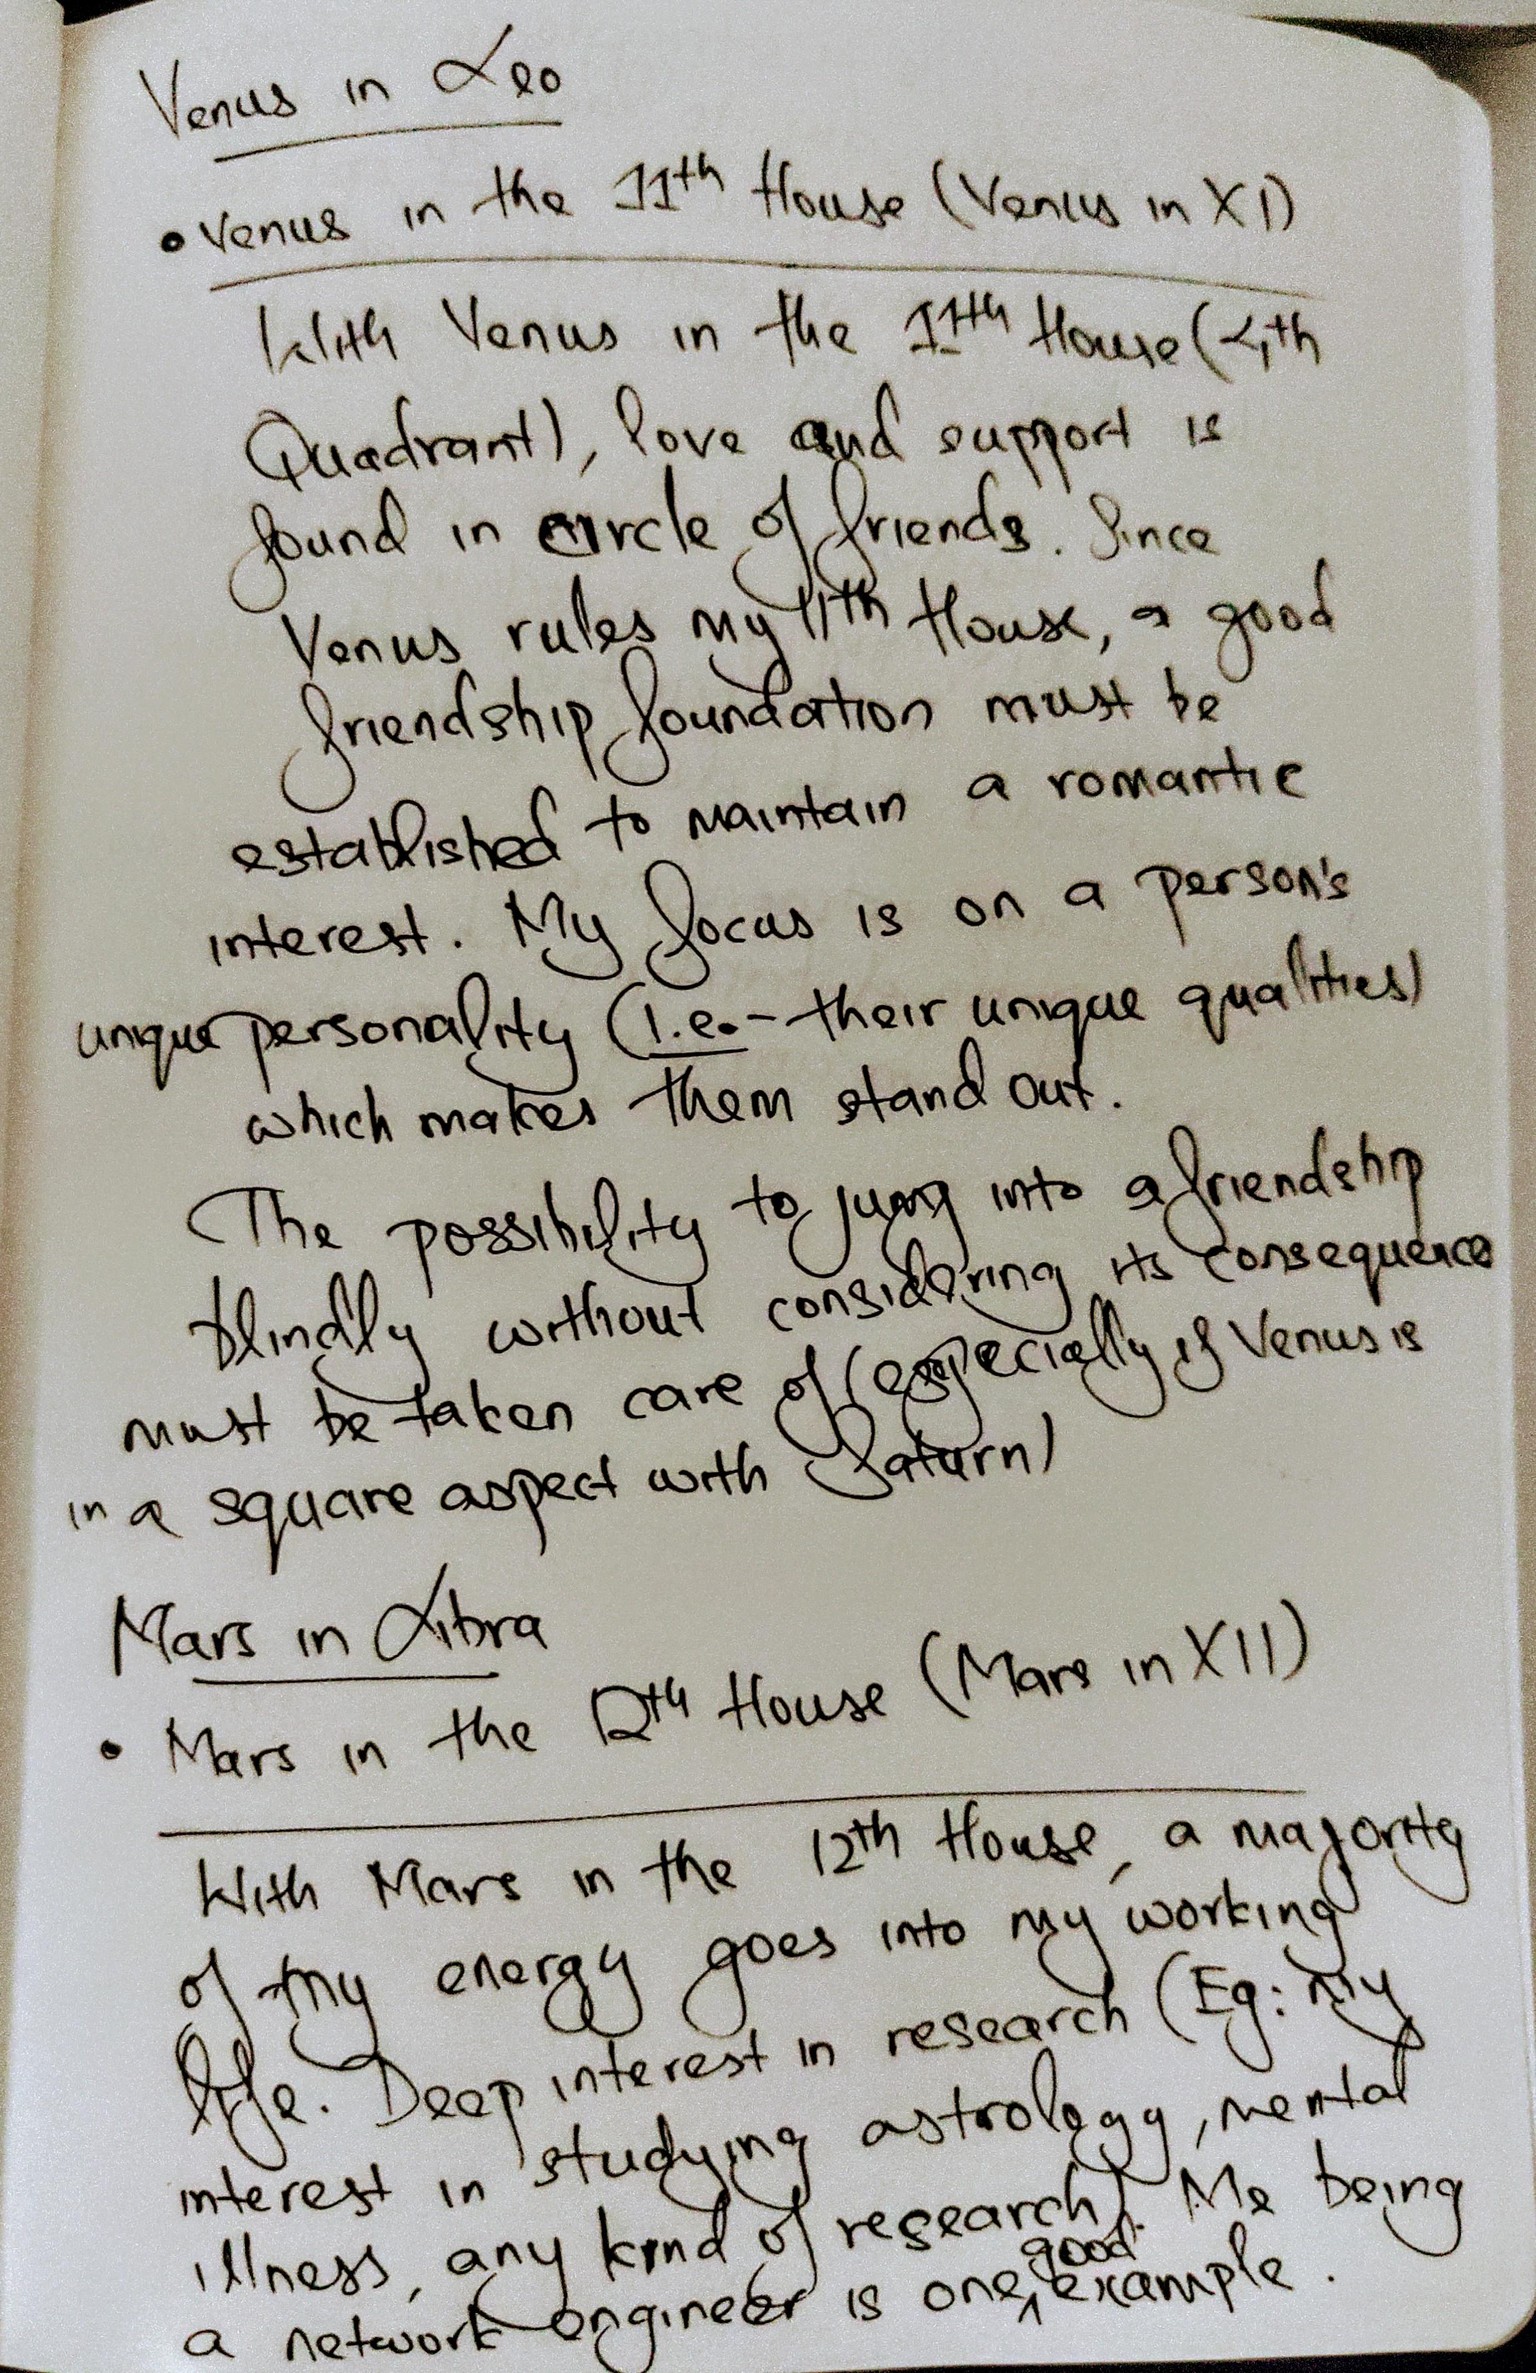 Venus in Leo
• Venus in the 11th House (Venus in XI)
With Venus in the 11th House (4th
Quadrant), love and support is
found in circle of friends. Since
Venus rules my 11th House, a good
friendship foundation must be
established to maintain a romantic
interest. My focus is on a person's
unique personality (i.e.- their unique qualities)
which makes them stand out.
The possibility to jump into a friendship
blindly without considering its consequence
must be taken care of (especially if Venus is
in a square aspect with Saturn)
Mars in Libra
• Mars in the 12th House (Mars in XII)
With Mars in the 12th House, a majority
of my energy goes into my working
life. Deep interest in research (Eg: my
interest in studying astrology, mental
illness, any kind of research). Me being
a network engineer is one good example.